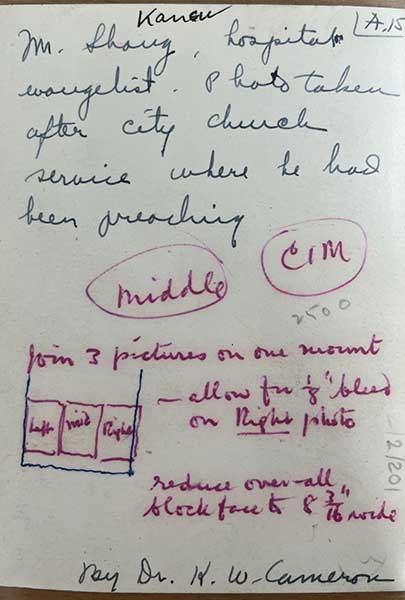 Kansu
A.15
Mr. Shang, hospital
evangelist. Photo taken
after city church
service where he had
been preaching
middle
CIM
2500
Join 3 pictures on one mount
Left mid Right
— allow for 1/8" bleed
on Right photo
12/201
reduce over-all
block face to 8 3/16" wide
By Dr. K. W. Cameron